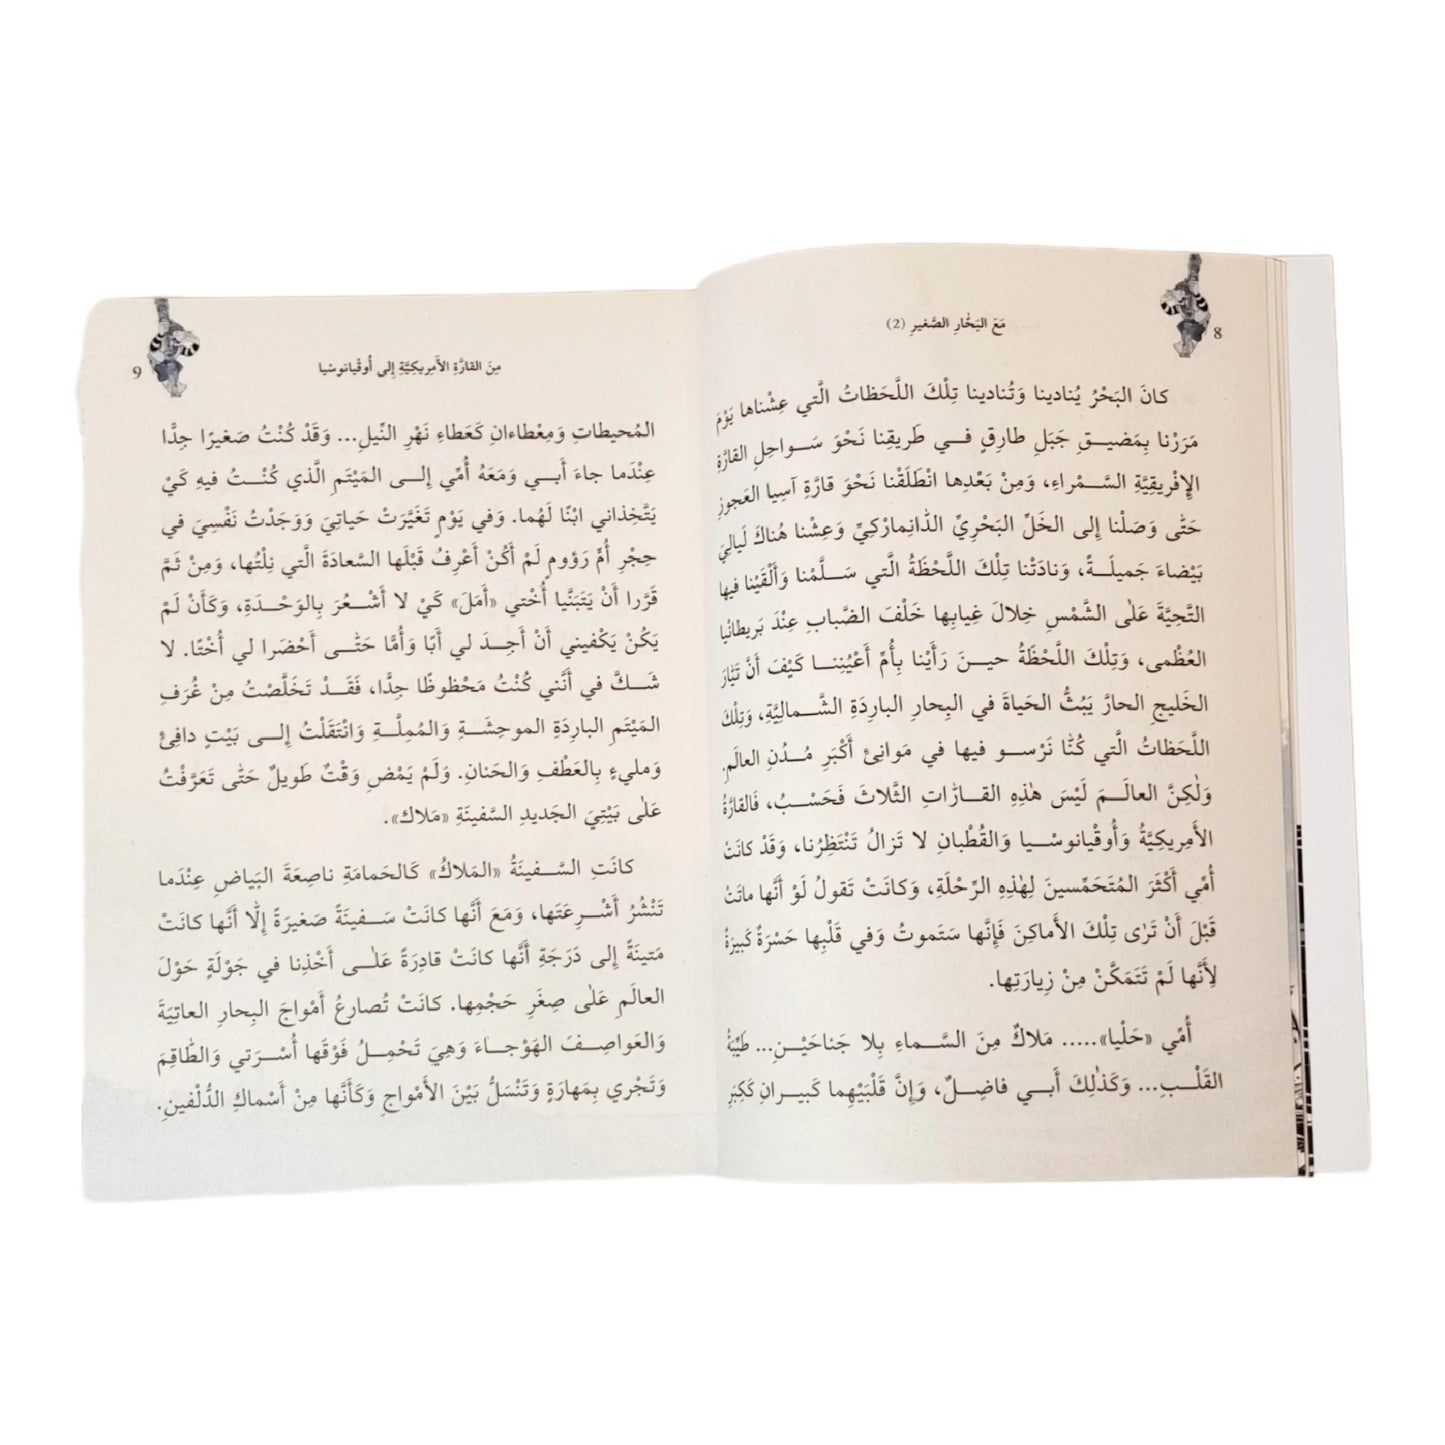 8
مَعَ البَحّارِ الصَّغيرِ (2)
كانَ البَحْرُ يُنادينا وَتُنادينا تِلْكَ اللَّحَظاتُ الَّتي عِشْناها يَوْمَ
مَرَرْنا بِمَضيـقِ جَبَلِ طارِقٍ فـي طَريقِنا نَحْوَ سَـواحِلِ القارَّةِ
الإِفْريقِيَّةِ السَّـمْراءِ، وَمِنْ بَعْدِها انْطَلَقْنا نَحْوَ قارَّةِ آسِيا العَجوزِ
حَتّى وَصَلْنا إِلى الخَلِّ البَحْرِيِّ الدّانِمارْكِيِّ وَعِشْنا هُناكَ لَيالِيَ
بَيْضاءَ جَميلَـةً، وَنادَتْنا تِلْكَ اللَّحْظَةُ الَّتي سَـلَّمْنا وَأَلْقَيْنا فيها
التَّحِيَّةَ عَلى الشَّمْسِ خِلالَ غِيابِها خَلْفَ الضَّبابِ عِنْدَ بَريطانْيا
العُظْمى، وَتِلْكَ اللَّحْظَةُ حيـنَ رَأَيْنا بِأُمِّ أَعْيُنِنـا كَيْفَ أَنَّ تَيّارَ
الخَليجِ الحارَّ يَبُثُّ الحَياةَ في البِحارِ البارِدَةِ الشَّـمالِيَّةِ، وَتِلْكَ
اللَّحَظاتُ الَّتي كُنّا نَرْسـو فيها في مَوانِئِ أَكْبَرِ مُـدُنِ العالَمِ.
وَلٰكِنَّ العالَـمَ لَيْسَ هٰذِهِ القـارّاتِ الثَّلاثَ فَحَسْبُ، فَالقارَّةُ
الأَمِريكِيَّةُ وَأُوقْيانوسْـيا وَالقُطْبانِ لا تَزالُ تَنْتَظِرُنا، وَقَدْ كانَتْ
أُمِّي أَكْثَرَ المُتَحَمِّسينَ لِهٰذِهِ الرِّحْلَةِ، وَكانَتْ تَقولُ لَوْ أَنَّها ماتَتْ
قَبْلَ أَنْ تَرٰى تِلْكَ الأَماكِنَ فَإِنَّها سَتَموتُ وَفي قَلْبِها حَسْرَةٌ كَبيرَةٌ
لِأَنَّها لَمْ تَتَمَكَّنْ مِنْ زِيارَتِها.
أُمِّي «حَلْيا»..... مَلاكٌ مِنَ السَّـماءِ بِلا جَناحَيْـنِ... طَيِّبَةُ
القَلْـبِ... وَكَذٰلِكَ أَبـي فاضِـلٌ، وَإِنَّ قَلْبَيْهِما كَبيـرانِ كَكِبَرِ
9
مِنَ القارَّةِ الأَمِريكِيَّةِ إِلى أُوقْيانوسْيا
المُحيطاتِ وَمِعْطاءانِ كَعَطاءِ نَهْرِ النّيلِ... وَقَدْ كُنْتُ صَغيرًا جِدًّا
عِنْدَما جاءَ أَبـي وَمَعَهُ أُمِّي إِلـى المَيْتَمِ الَّذي كُنْـتُ فيهِ كَيْ
يَتَّخِذاني ابْنًا لَهُما. وَفي يَوْمٍ تَغَيَّرَتْ حَياتِيَ وَوَجَدْتُ نَفْسِيَ في
حِجْرِ أُمٍّ رَؤومٍ لَمْ أَكُنْ أَعْرِفُ قَبْلَها السَّعادَةَ الَّتي نِلْتُها، وَمِنْ ثَمَّ
قَرَّرا أَنْ يَتَبَنَّيا أُخْتي «أَمَلَ» كَيْ لا أَشْـعُرَ بِالوَحْـدَةِ، وَكَأَنْ لَمْ
يَكُنْ يَكْفيني أَنْ أَجِـدَ لي أَبًا وَأُمًّا حَتّـى أَحْضَرا لي أُخْتًا. لا
شَـكَّ في أَنَّني كُنْتُ مَحْظوظًا جِدًّا، فَقَـدْ تَخَلَّصْتُ مِنْ غُرَفِ
المَيْتَمِ البارِدَةِ الموحِشَـةِ وَالمُمِلَّـةِ وَانْتَقَلْتُ إِلـى بَيْـتٍ دافِئٍ
وَمليءٍ بِالعَطْفِ وَالحَنانِ. وَلَمْ يَمْضِ وَقْتٌ طَويلٌ حَتّى تَعَرَّفْتُ
عَلى بَيْتِيَ الجَديدِ السَّفينَةِ «مَلاك».
كانَتِ السَّـفينَةُ «المَلاكُ» كَالحَمامَةِ ناصِعَةَ البَياضِ عِنْدَما
تَنْشُرُ أَشْـرِعَتَها، وَمَعَ أَنَّها كانَتْ سَـفينَةً صَغيرَةً إِلّا أَنَّها كانَتْ
مَتينَةً إِلى دَرَجَةِ أَنَّها كانَتْ قادِرَةً عَلـى أَخْذِنا في جَوْلَةٍ حَوْلَ
العالَمِ عَلى صِغَرِ حَجْمِها. كانَتْ تُصارِعُ أَمْواجَ البِحارِ العاتِيَةَ
وَالعَواصِـفَ الهَوْجـاءَ وَهِيَ تَحْمِـلُ فَوْقَها أُسْـرَتي وَالطّاقِمَ
وَتَجْري بِمَهارَةٍ وَتَنْسَلُّ بَيْنَ الأَمْواجِ وَكَأَنَّها مِنْ أَسْماكِ الدُّلْفينِ.